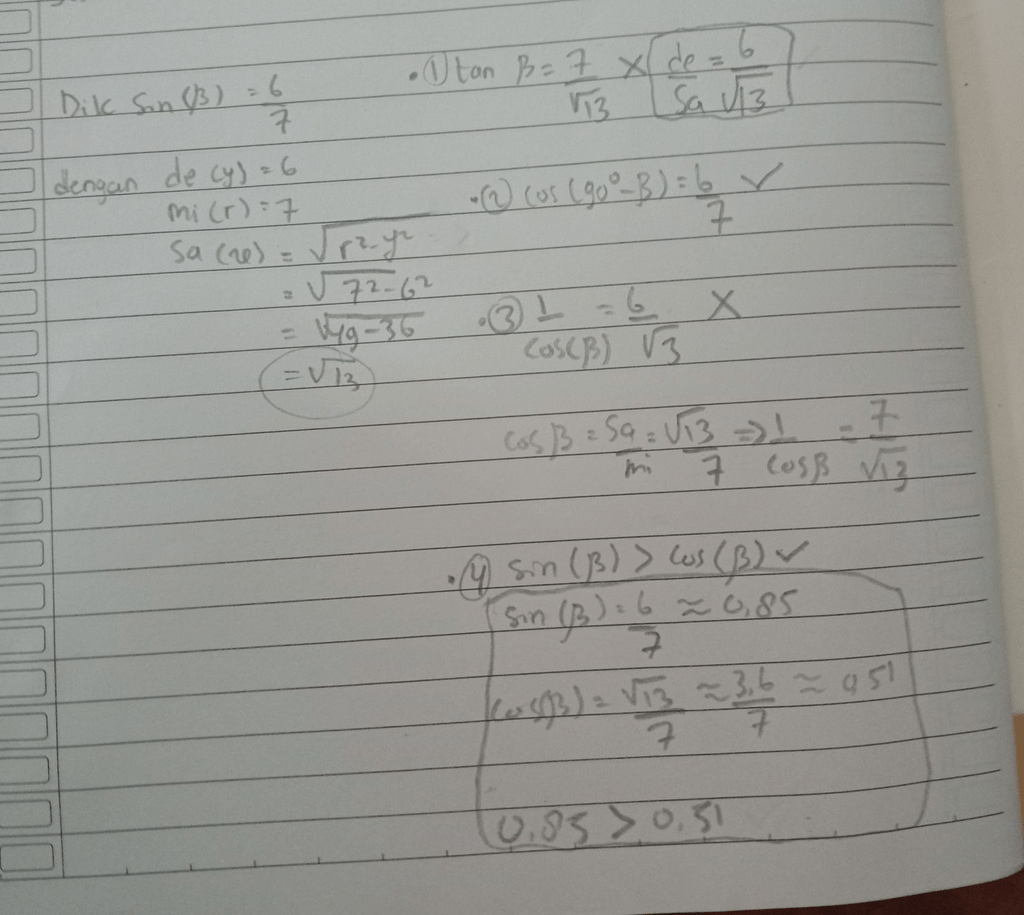 Dik sin (β) = 6/7
dengan de (y) = 6
mi (r) = 7
sa (x) = √r²-y²
= √7²-6²
= √49-36
= √13
• ① tan β = 7/√13 × de/sa = 6/√13
• ② cos (90°-β) = 6/7 ✓
• ③ 1/cos(β) = 6/√3 ×
cos β = sa/mi = √13/7 ⇒ 1/cosβ = 7/√13
• ④ sin (β) > cos (β) ✓
sin (β) = 6/7 ≈ 0,85
cos(β) = √13/7 ≈ 3,6/7 ≈ 0,51
0,85 > 0,51